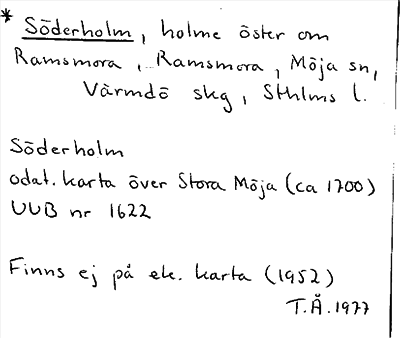 * Söderholm, holme öster om
Ramsmora, Ramsmora, Möja sn,
Värmdö skg, Sthlms l.
Söderholm
odat. karta över Stora Möja (ca 1700)
UUB nr 1622
Finns ej på ek. karta (1952)
T.Å. 1977